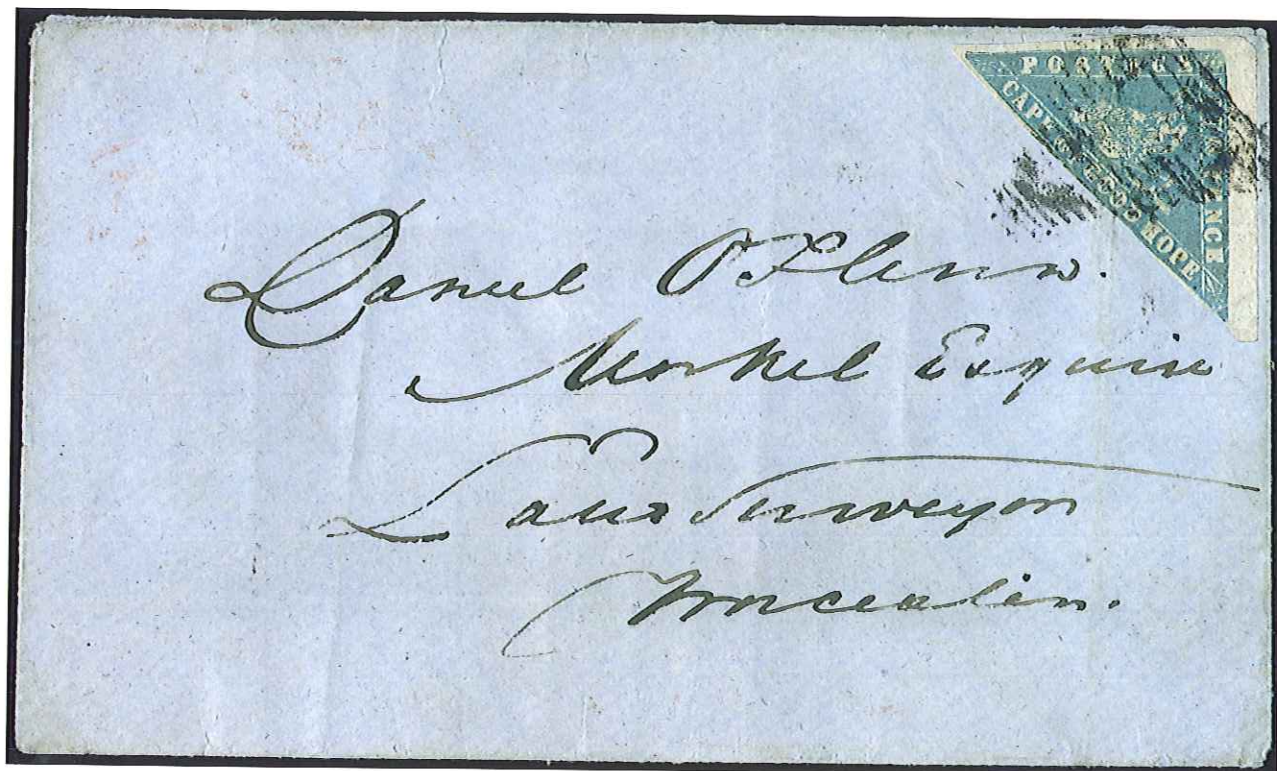 POSTAGE
CAPE OF GOOD HOPE
PENCE
Daniel O'Flinn.
Morkel Esquire
Land Surveyor
Worcester.